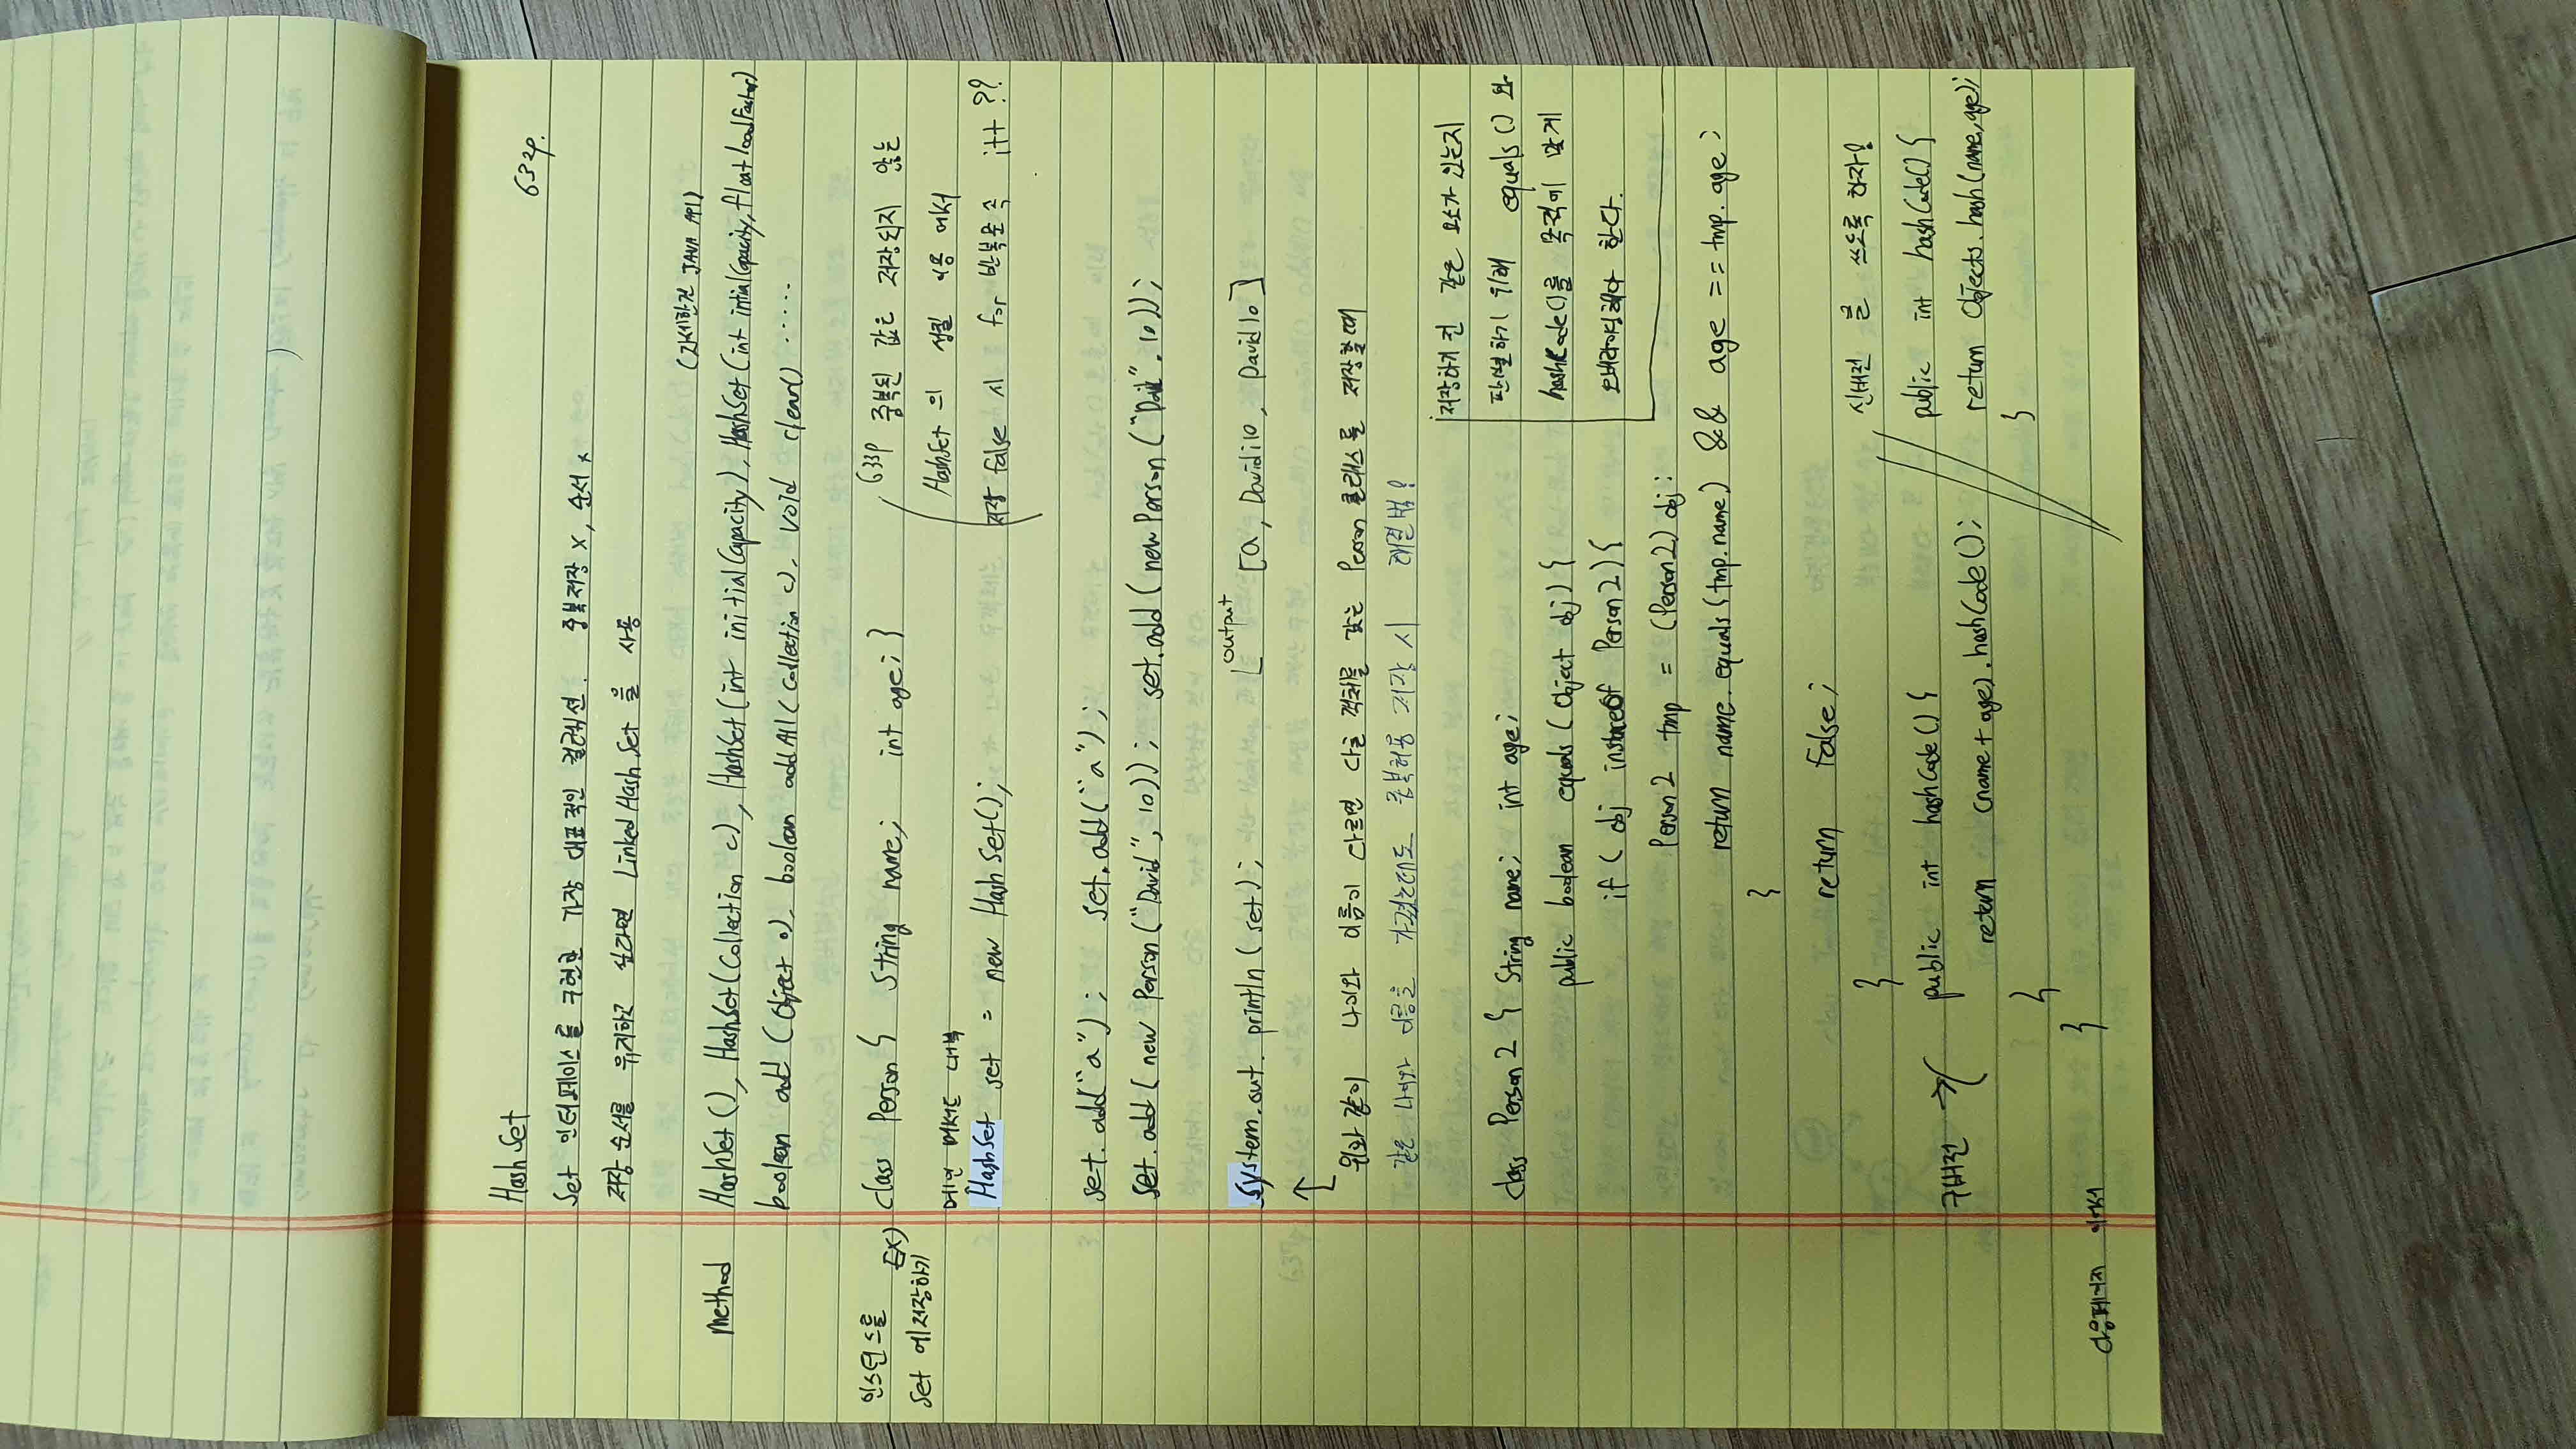 Hash Set
632p.
Set 인터페이스를 구현한 가장 대표적인 컬렉션. 중복저장 x, 순서 x
저장 순서를 유지하고 싶다면 Linked Hash Set 을 사용
(자세한건 JAVA API)
method HashSet(), HashSet(Collection c), HashSet(int initialCapacity), HashSet(int intialCapacity, float loadFactor)
boolean add (Object o), boolean addAll(Collection c), void clear() ......
인스턴스를
Set 에 저장하기
EX) class Person { String name; int age; }
633p 중복된 값은 저장되지 않는
HashSet 의 성질 이용 에서
저장 false 시 for 반복문 속 i++ ??
메인 메서드 내부
HashSet set = new Hash Set();
set. add("a"); set.add("a");
set.add ( new Person ("David", 10)); set.add ( new Person ("David", 10));
System.out. println ( set );
output [a, David:10, David:10]
위와 같이 나이와 이름이 다르면 다를 객체를 갖는 Person 클래스를 저장할 때
같은 나이와 이름을 가졌는데도 중복허용 저장 시 해결법!
저장하기 전 같은 요소가 있는지
판별하기 위해 equals() 와
hashCode()를 목적에 맞게
오버라이딩해야 한다.
class Person 2 { String name; int age;
public boolean equals (Object obj) {
if ( obj instanceOf Person 2) {
Person 2 tmp = (Person 2) obj;
return name. equals (tmp. name) && age == tmp. age;
}
return false;
}
구버전 →( public int hashCode() {
return (name + age). hashCode();
}
}
신버전 을 쓰도록 하자!
public int hashCode() {
return Objects. hash(name, age);
}
다음페이지 이어서